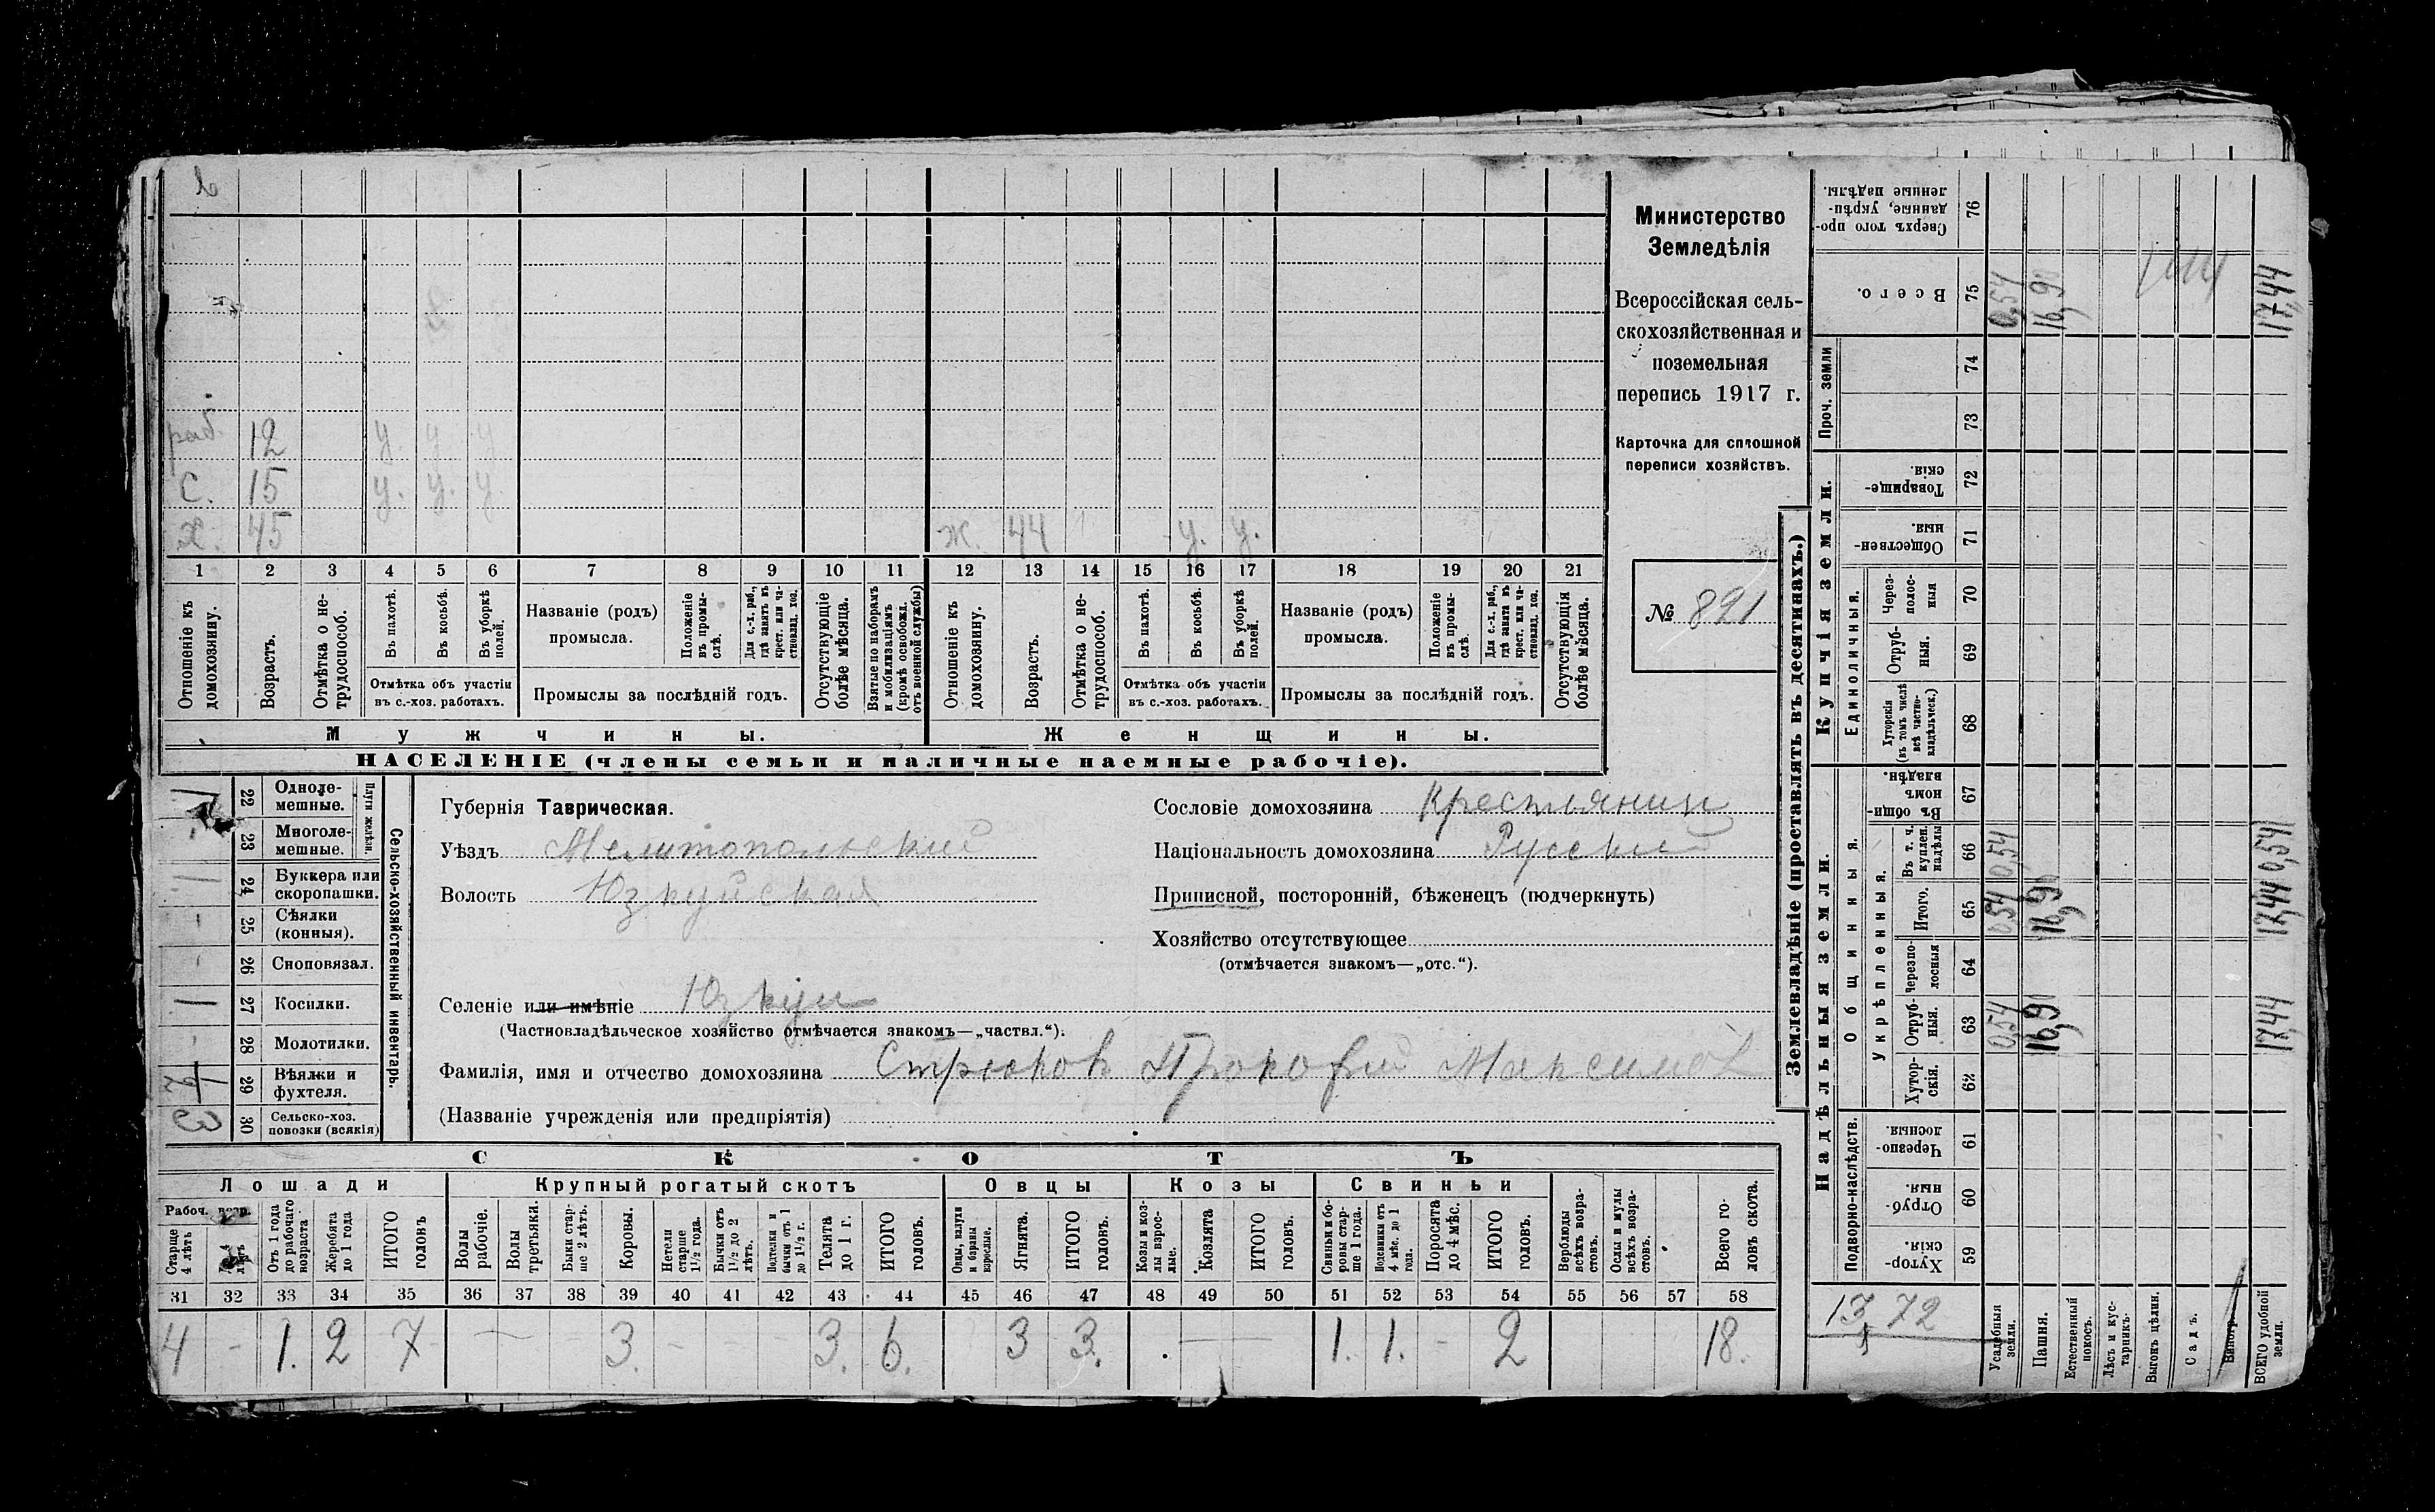 раб. 12 у. у у
С. 15 у. у. у.
Х. 45 ж. 44 у. у.
1 2 3 4 5 6 7 8 9 10 11 12 13 14 15 16 17 18 19 20 21
Отношеніе къ домохозяину.
Возрастъ.
Отмѣтка о не-
трудоспособ.
Въ пахотѣ.
Въ косьбѣ.
Въ уборкѣ полей.
Отмѣтка объ участіи
въ с.-хоз. работахъ.
Названіе (родъ)
промысла.
Положеніе
въ промы-
слѣ.
Для с.-х. раб.,
гдѣ занятъ въ
крест. или ча-
стновлад. хоз.
Промыслы за послѣдній годъ.
Отсутствующіе
болѣе мѣсяца.
Взятые по наборамъ
и мобилизаціямъ
(кромѣ освобожд.
отъ военной службы)
Отношеніе къ
домохозяину.
Возрастъ.
Отмѣтка о не-
трудоспособ.
Въ пахотѣ.
Въ косьбѣ.
Въ уборкѣ
полей.
Отмѣтка объ участіи
въ с.-хоз. работахъ.
Названіе (родъ)
промысла.
Положеніе
въ промы-
слѣ.
Для с.-х. раб.,
гдѣ занята въ
крест. или ча-
стновлад. хоз.
Промыслы за послѣдній годъ.
Отсутствующія
болѣе мѣсяца.
Мужчины. Женщины.
НАСЕЛЕНІЕ (члены семьи и наличные наемные рабочіе).
Министерство
Земледѣлія
Всероссійская сель-
скохозяйственная и
поземельная
перепись 1917 г.
Карточка для сплошной
переписи хозяйствъ.
№ 821
Сельско-хозяйственный инвентарь.
Плуги желѣзн.
22 Одноле-
мешные.
23 Многоле-
мешные.
1 24 Буккера или
скоропашки.
- 25 Сѣялки
(конныя).
- 26 Сноповязал.
1 27 Косилки.
- 28 Молотилки.
1/2 29 Вѣялки и
фухтеля.
3 30 Сельско-хоз.
повозки (всякія)
Губернія Таврическая.
Уѣздъ Мелитопольский
Волость Юзкуйская
Селеніе или имѣніе Юзкуи
(Частновладѣльческое хозяйство отмѣчается знакомъ—„частвл.“).
Фамилія, имя и отчество домохозяина Стрюков Прокофий Максимов
(Названіе учрежденія или предпріятія)
Сословіе домохозяина Крестьянин
Національность домохозяина Русский
Приписной, посторонній, бѣженецъ (подчеркнуть)
Хозяйство отсутствующее
(отмѣчается знакомъ—„отс.“).
СКОТЪ
Лошади Крупный рогатый скотъ Овцы Козы Свиньи
Рабоч. возр.
Старше
4 лѣтъ
Отъ 1 года
до рабочаго
возраста
Жеребята
до 1 года
ИТОГО
головъ
Волы
рабочіе.
Волы
третьяки.
Быки стар-
ше 2 лѣтъ.
Коровы.
Нетели
старше
1½ года.
Бычки отъ
1½ до 2
лѣтъ.
Подтелки и
бычки отъ 1
до 1½ г.
Телята
до 1 г.
ИТОГО
головъ.
Овцы, валухи
и бараны
взрослые.
Ягнята.
ИТОГО
головъ.
Козы и коз-
лы взрос-
лые.
Козлята
ИТОГО
головъ.
Свиньи и бо-
ровы стар-
ше 1 года.
Подсвинки отъ
4 мѣс. до 1
года.
Поросята
до 4 мѣс.
ИТОГО
головъ.
Верблюды
всѣхъ возра-
стовъ.
Ослы и мулы
всѣхъ возра-
стовъ.
Всего го-
ловъ скота.
31 32 33 34 35 36 37 38 39 40 41 42 43 44 45 46 47 48 49 50 51 52 53 54 55 56 57 58
4 - 1. 2 7 — - 3. - - - 3. 6. 3 3. — 1. 1. - 2 18.
Землевладѣніе (проставлять въ десятинахъ.)
Купчія земли.
Надѣльныя земли.
Сверхъ того про-
данные, укрѣп-
ленные надѣлы.
76
Всего.
75 0,54 16,90 17,44
Проч. земли
74
73
Товарище-
скія.
72
Обществен-
ныя.
71
Единоличныя.
Через-
полос-
ныя
70
Отруб-
ныя.
69
Хуторскія
(въ томъ числѣ
всѣ частно-
владѣльческ.)
68
Общинныя.
Въ общи-
номъ
владѣн.
67
Укрѣпленныя.
Въ т. ч.
куплен.
надѣлы
66 0,54 0,54
Итого.
65 0,54 16,90 17,44
Черезпо-
лосныя
64
Отруб-
ныя.
63 0,54 16,90 17,44
Хутор-
скія.
62
Подворно-наслѣдств.
Черезпо-
лосныя.
61
Отруб-
ныя.
60
Хутор-
скія.
59
13,72
Усадебныя
земли.
Пашня.
Естественный
покосъ.
Лѣсъ и кус-
тарникъ.
Выгонъ цѣлин.
Садъ.
Виногр.
ВСЕГО удобной
земли.